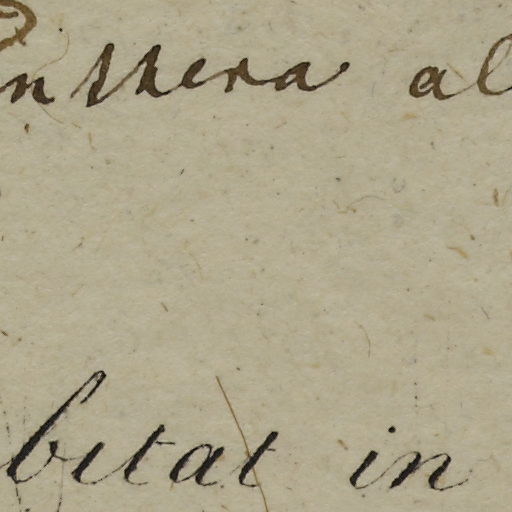 nthera al
bitat in